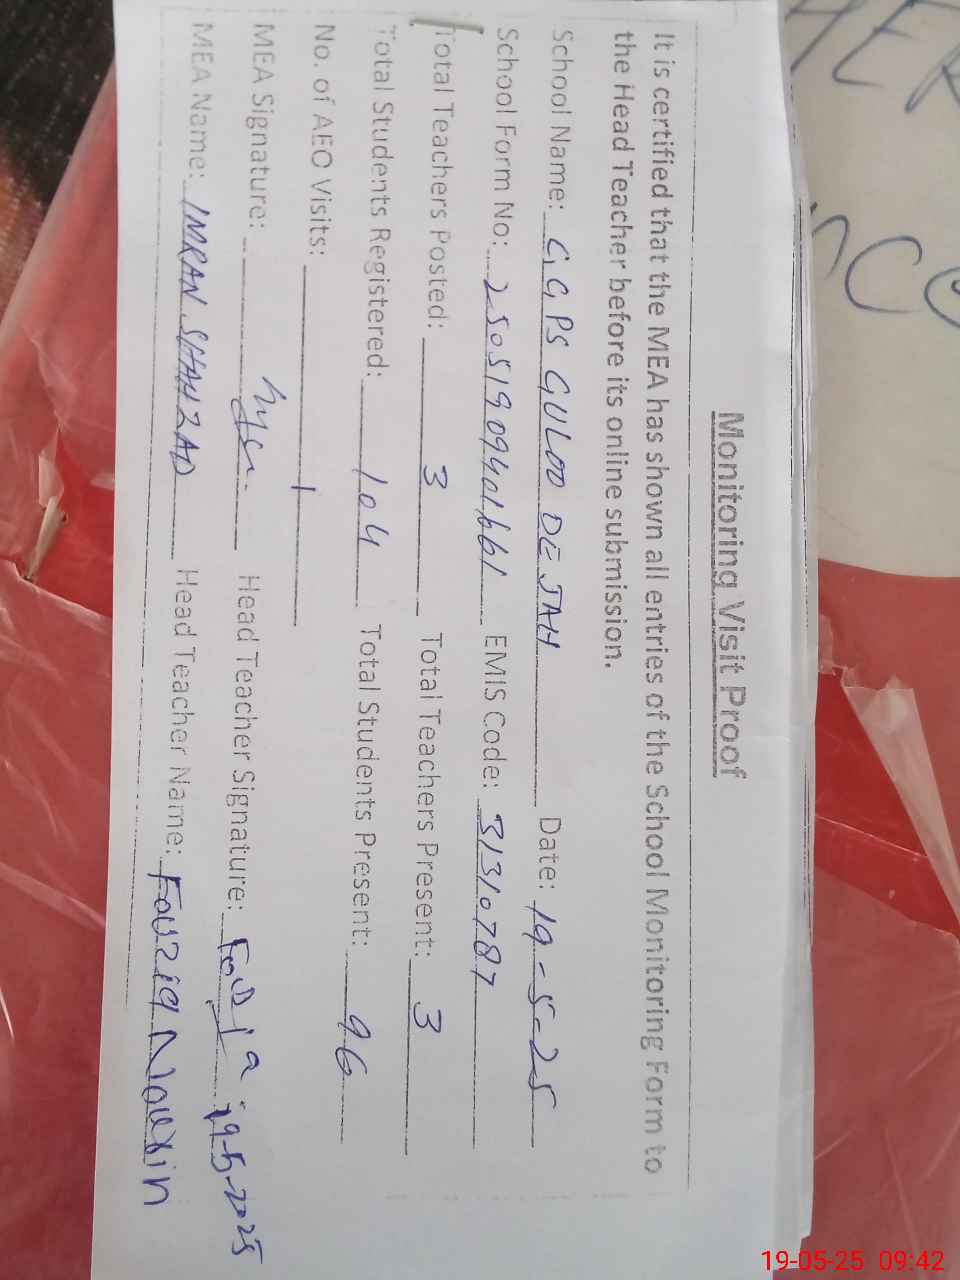 Monitoring Visit Proof
It is certified that the MEA has shown all entries of the School Monitoring Form to
the Head Teacher before its online submission.
School Name: GGPS GULOO DE JAH Date: 19-5-25
School Form No: 25051909401661 EMIS Code: 31310787
Total Teachers Posted: 3 Total Teachers Present: 3
Total Students Registered: 104 Total Students Present: 96
No. of AEO Visits: 1
MEA Signature: Head Teacher Signature: Fouzia 19-5-2025
MEA Name: IMRAN SHAHZAD Head Teacher Name: Fouzia Nourin
19-05-25 09:42